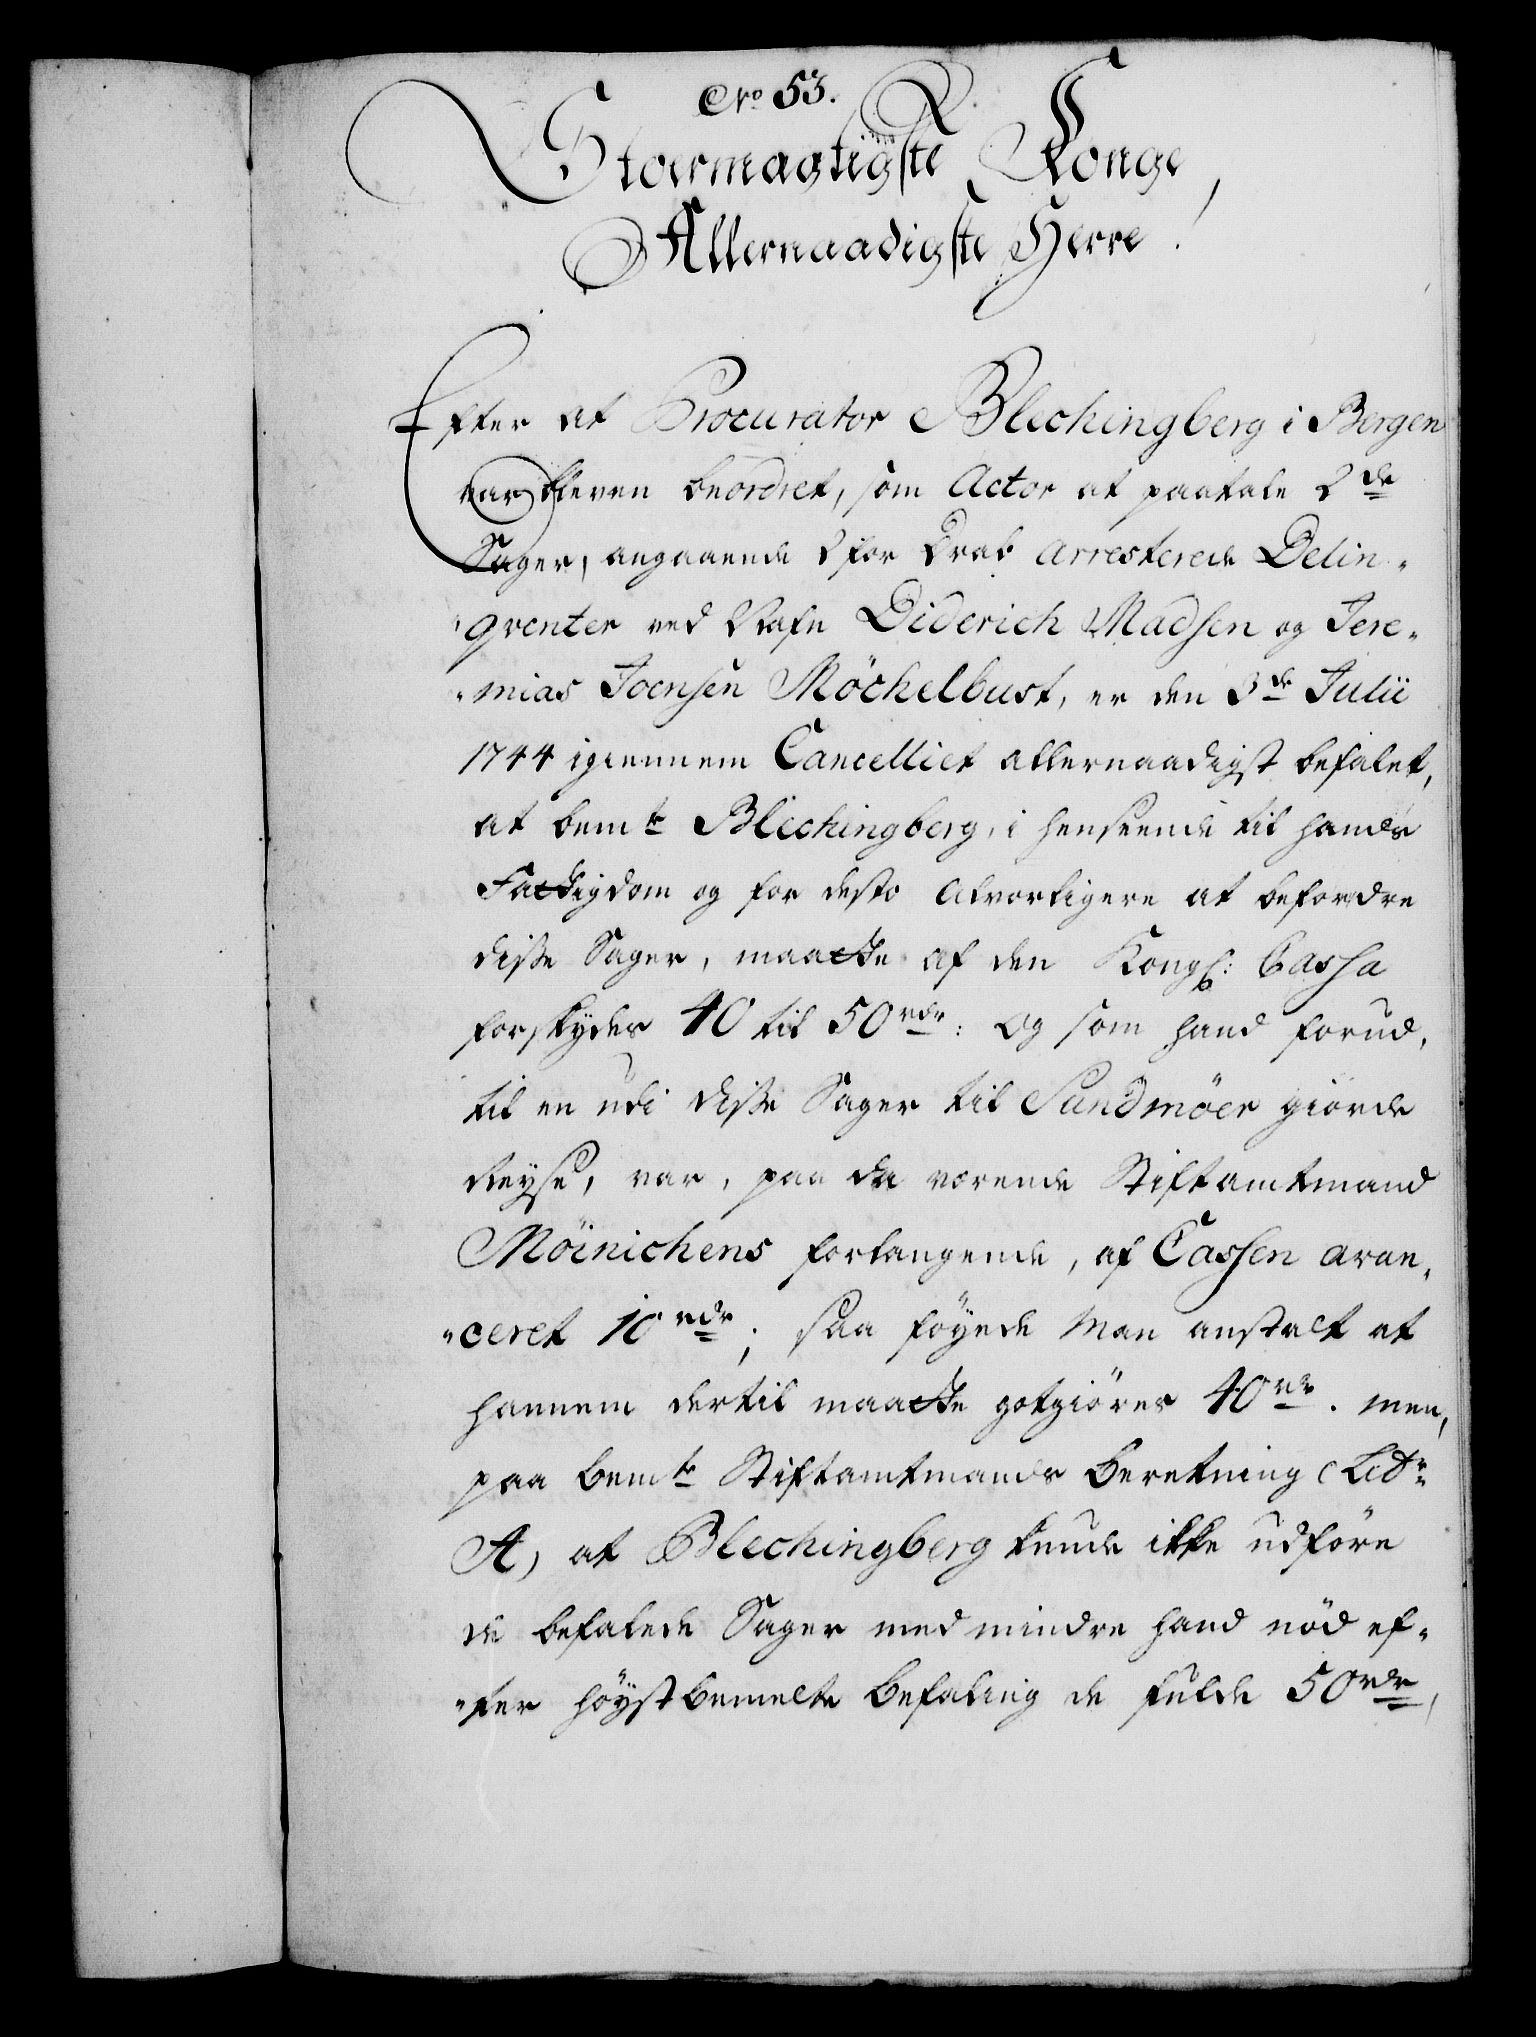 No 53.
Stoermagtigste Konge,
Allernaadigste Herre!
Efter at Procurator Blechingberg i Bergen
var bleven beordret, som Actor at paatale 2de
Sager, angaaende 2 for Drab arresterede Delin-
qventer ved Nafn Diderich Madsen og Jere-
mias Joensen Möchelbust, er den 3de Julii
1744 igiennem Cancelliet allernaadigst befalet,
at bemte Blechingberg, i henseende til hands
Fattigdom og for desto alvorligere at befordre
disse Sager, maatte af den Kongl: Cassa
forskydes 40 til 50 rdr: Og som hand forud,
til en udi disse Sager til Sundmöer giorde
Reyse, var, paa da værende Stiftamtmand
Möinichens forlangende, af Cassen avan-
ceret 10 rdr; saa föyede Man anstalt at
hannem dertil maatte gotgiöres 40 rdr. men,
paa bemte Stiftamtmands Beretning (Litr:
A) at Blechingberg kunde ikke udföre
de befalede Sager med mindre hand nöd ef-
ter höystbemelte Befaling de fulde 50 rdr,